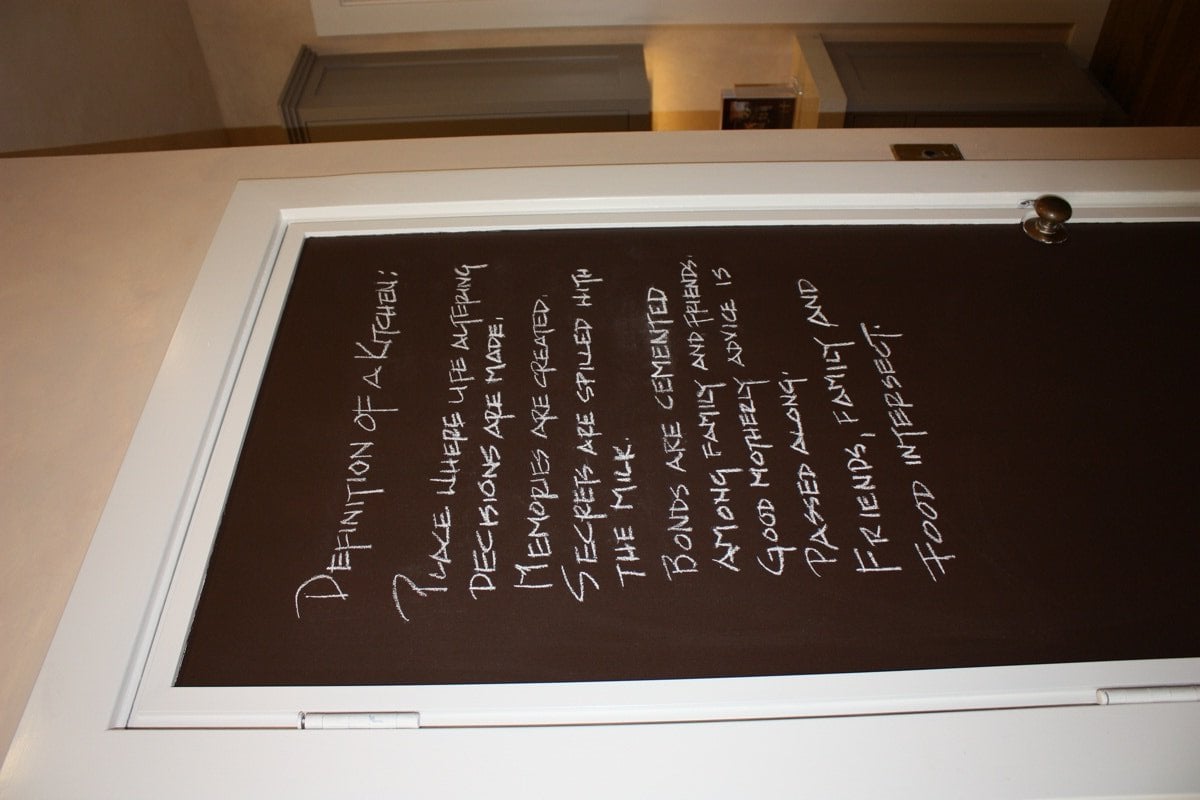 DEFINITION OF A KITCHEN:
PLACE WHERE LIFE ALTERING
DECISIONS ARE MADE.
MEMORIES ARE CREATED.
SECRETS ARE SPILLED WITH
THE MILK.
BONDS ARE CEMENTED
AMONG FAMILY AND FRIENDS.
GOOD MOTHERLY ADVICE IS
PASSED ALONG.
FRIENDS, FAMILY AND
FOOD INTERSECT.